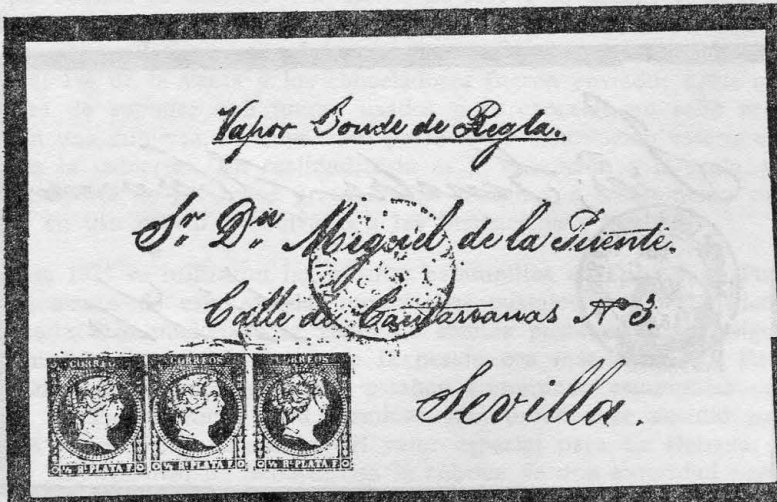 Vapor Conde de Regla.
Sr. Dn. Miguel de la Fuente.
Calle de Cantarranas Nº 3.
Sevilla.
CORREOS CORREOS CORREOS
½ Rl. PLATA F. ½ Rl. PLATA F. ½ Rl. PLATA F.